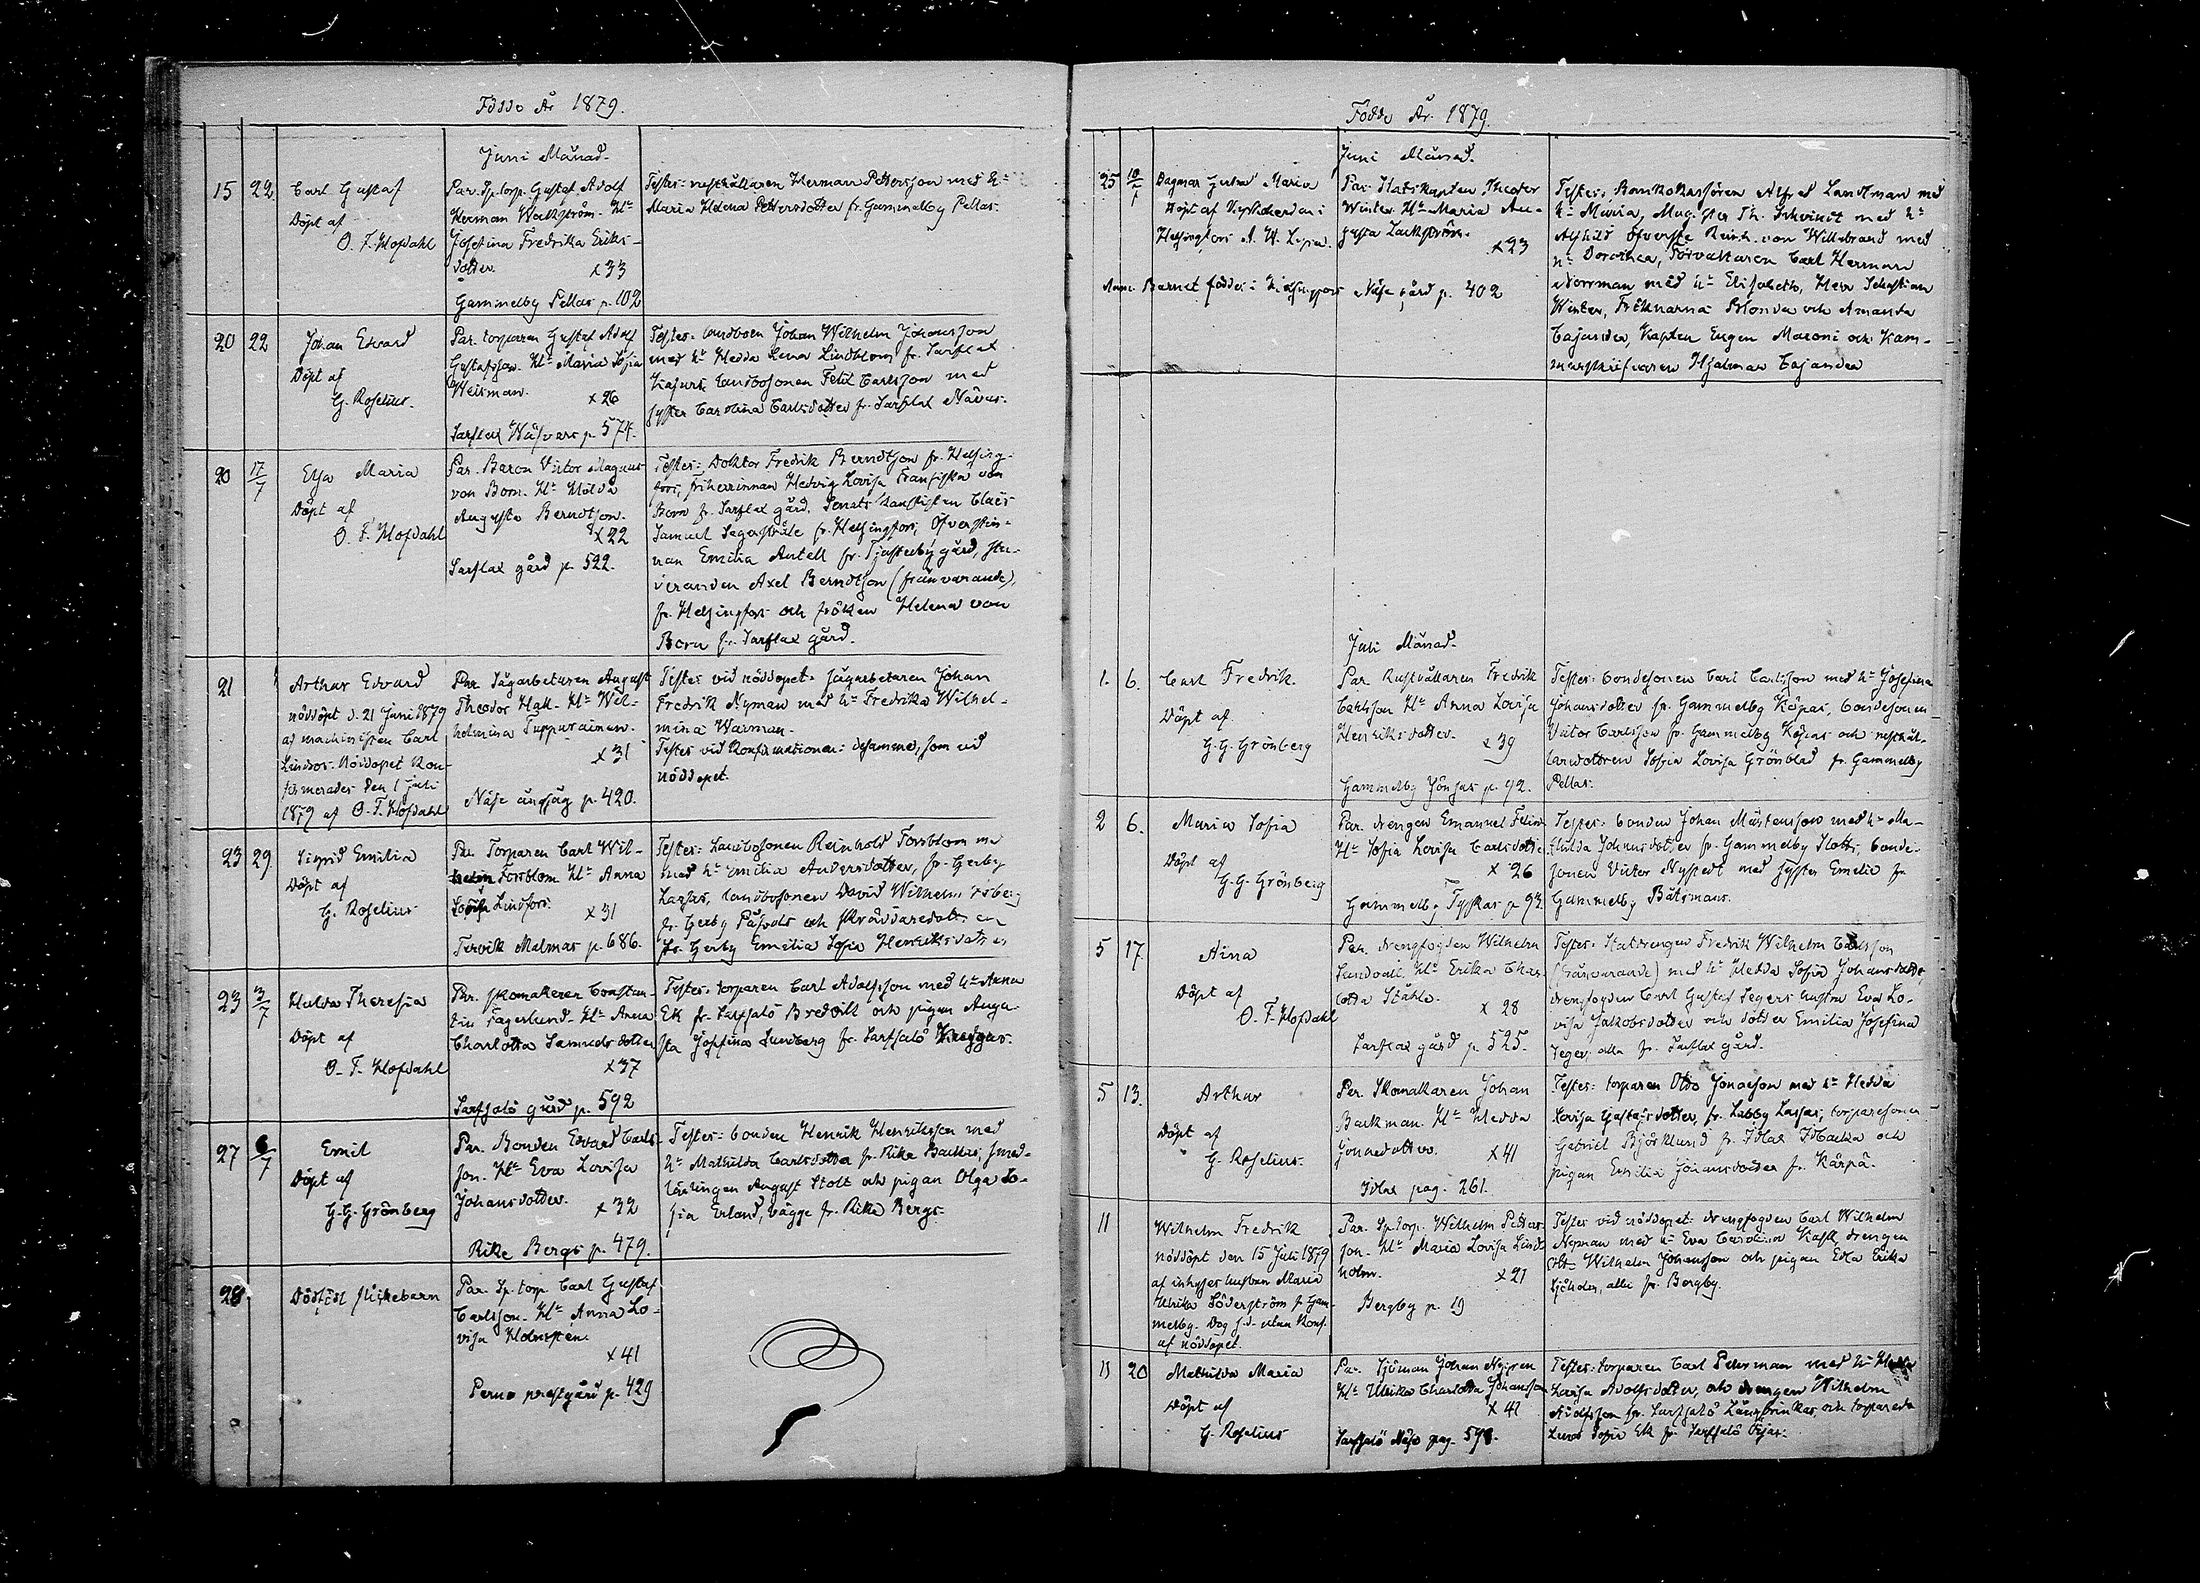 Födde År 1879.
Juni Månad.
15 22 Carl Gustaf
Döpt af
O. F. Hofdahl
Par. Sp. torp. Gustaf Adolf
Herman Walkström. Hu
Josefina Fredrika Eriks-
dotter. x33
Gammelby Pellas p. 102
Testes: rusthållaren Herman Pettersson med hu
Maria Helena Pettersdotter fr. Gammelby Pellas.
20 22 Johan Edvard
Döpt af
G. Roselius.
Par. torparen Gustaf Adolf
Gustafsson. Hu Maria Sofia
Weisman. x26
Sarflax p. 574.
Testes: landboen Johan Wilhelm Johansson
med hu Hedda Lena Lindblom fr. Sarflax
landbosonen Felix Carlsson med
syster Carolina Carlsdotter fr. Sarflax
20 17/7 Elsa Maria
Döpt af
O. F. Hofdahl
Par. Baron Victor Magnus
von Born. Hu Hilda
Augusta Berndtson.
x22
Sarflax gård p. 522.
Testes: Doktor Fredrik Berndtson fr. Helsing-
fors, friherrinnan Hedvig Lovisa Fransiska von
Born fr. Sarflax gård, Senats kanslisten Claës
Samuel Segerstråle fr. Helsingfors, Öfverstin-
nan Emilia Antell fr. Tjusterby gård, stu-
deranden Axel Berndtson (frånvarande),
fr. Helsingfors och fröken Helena von
Born fr. Sarflax gård.
21 Arthur Edvard
nöddöpt d. 21 Juni 1879
af machinisten Carl
Lindros. Nöddopet kon-
firmerades den 1 Juli
1879 af O. F. Hofdahl
Par. Sågarbetaren August
Theodor Hall. Hu Wil-
helmina Tuppurainen.
x31
Näse ångsåg p. 420.
Testes vid nöddopet: sågarbetaren Johan
Fredrik Nyman med hu Fredrika Wilhel-
mina Warman.
Testes vid konfirmationen: desamma, som vid
nöddopet.
23 29 Sigrid Emilia
Döpt af
G. Roselius
Par. Torparen Carl Wil-
helm Forsblom Hu Anna
Lovisa Lindfors. x31
Tervik Malmas p. 686.
Testes: Landbosonen Reinhold Forsblom
med hu Emilia Andersdotter, fr. Gerby
Lassas, landbosonen David Wilhelm
fr. Gerby och skräddaredotteren
fr. Gerby Emilia Sofia Henriksdotter
23 3/7 Hulda Theresia
Döpt af
O. F. Hofdahl
Par. skomakaren Constan-
tin Fagerlund. Hu Anna
Charlotta Samuelsdotter
x37
Sarfsalö gård p. 592
Testes: torparen Carl Adolfsson med hu Anna
Ek fr. Sarfsalö Bredvik och pigan Augu-
sta Josefina Lundberg fr. Sarfsalö
27 6/7 Emil
Döpt af
G. G. Grönberg
Par. Bonden Edvard Carls-
son. Hu Eva Lovisa
Johansdotter. x32
Rike Bergs p. 479.
Testes: bonden Henrik Henriksson med
hu Mathilda Carlsdotter fr. Rike Backas, smed-
lärlingen August Stolt och pigan Olga So-
fia Erlund, bägge fr. Rike Bergs.
28. Dödfödt flickebarn
Par. Sp. torp Carl Gustaf
Carlsson. Hu Anna Lo-
visa Holmstén.
x41
Perno prestgård p. 429
Födde År 1879.
Juni Månad.
25 10/7 Dagmar Maria
Döpt af Kyrkoherden i
Helsingfors A. W.
Anm. Barnet föddes i Helsingfors
Par. Statskapten Theodor
Winter. Hu Maria Au-
gusta Lackström.
x23
Näse gård p. 402
Testes: Bankokassören Alfred Landtman med
hu Maria, Magister Th. med hu
Alfhild Öfverste Reinh. von Willebrand med
hu Dorothea, Förvaltaren Carl Herrman
Norrman med hu Elisabeth, Herr Sebastian
Winter, Fröknarna Blonda och Amanda
Cajander, Kapten Eugen Maconi och Kam-
marskrifvaren Hjalmar Cajander
Juli Månad.
1. 6. Carl Fredrik.
Döpt af
G. G. Grönberg
Par. Rusthållaren Fredrik
Carlsson Hu Anna Lovisa
Henriksdotter. x39
Gammelby Jönsas p. 92.
Testes: bondesonen Carl Carlsson med hu Josefina
Johansdotter fr. Gammelby Köpas, bondesonen
Victor Carlsson fr. Gammelby Köpas och rusthål-
laredottren Sofia Lovisa Grönblad fr. Gammelby
Pellas.
2 6. Maria Sofia
Döpt af
G. G. Grönberg
Par. drengen Emanuel
Hu Sofia Lovisa Carlsdotter
x26
Gammelby Typpas p. 93.
Testes: bonden Johan Mårtensson med hu Ma-
thilda Johansdotter fr. Gammelby Slotts, bonde-
sonen Victor Nystedt med syster Emelie fr.
Gammelby Båtsmans.
5 17. Aina
Döpt af
O. F. Hofdahl
Par. drengfogden Wilhelm
Sundvall. Hu Erika Char-
lotta Ståhle.
x28
Sarflax gård p. 525.
Testes: Statdrengen Fredrik Wilhelm Carlsson
(frånvarande) med hu Hedda Sofia Johansdotter,
drengfogden Carl Gustaf Segers hustru Eva Lo-
visa Jakobsdotter och dotter Emilia Josefina
Seger, alla fr. Sarflax gård.
5 13. Arthur
Döpt af
G. Roselius.
Par. Skomakaren Johan
Backman. Hu Hedda
Jonaedotter. x41
Idlax pag. 261.
Testes: torparen Otto Jonaeson med hu Hedda
Lovisa Gustafsdotter, fr. Labby Lassas, torparesonen
Gabriel Björklund fr. Idlax och
pigan Emilia Johansdotter fr. Kärpä.
11 Wilhelm Fredrik
nöddöpt den 15 Juli 1879
af inhyses hustrun Maria
Ulrika Söderström fr. Gam-
melby. Dog s. d. utan konf.
af nöddopet.
Par. Sp. torp. Wilhelm Petters-
son. Hu Maria Lovisa Lind-
holm. x21
Bergby p. 19
Testes vid nöddopet: drengfogden Carl Wilhelm
Nyman med hu Eva Carolina Kask, drengen
Wilhelm Johansson och pigan Edla Erika
Sjöholm, alla fr. Bergby.
11 20 Mathilda Maria
Döpt af
G. Roselius
Par. Sjöman Johan Nygren
Hu Ulrika Charlotta Johansson
x41
Sarfsalö Näse pag. 598.
Testes: torparen Carl Peterman med hu Hedda
Lovisa Adolfsdotter, och drengen Wilhelm
Adolfsson fr. Sarfsalö och
Sofia Ek fr. Sarfsalö